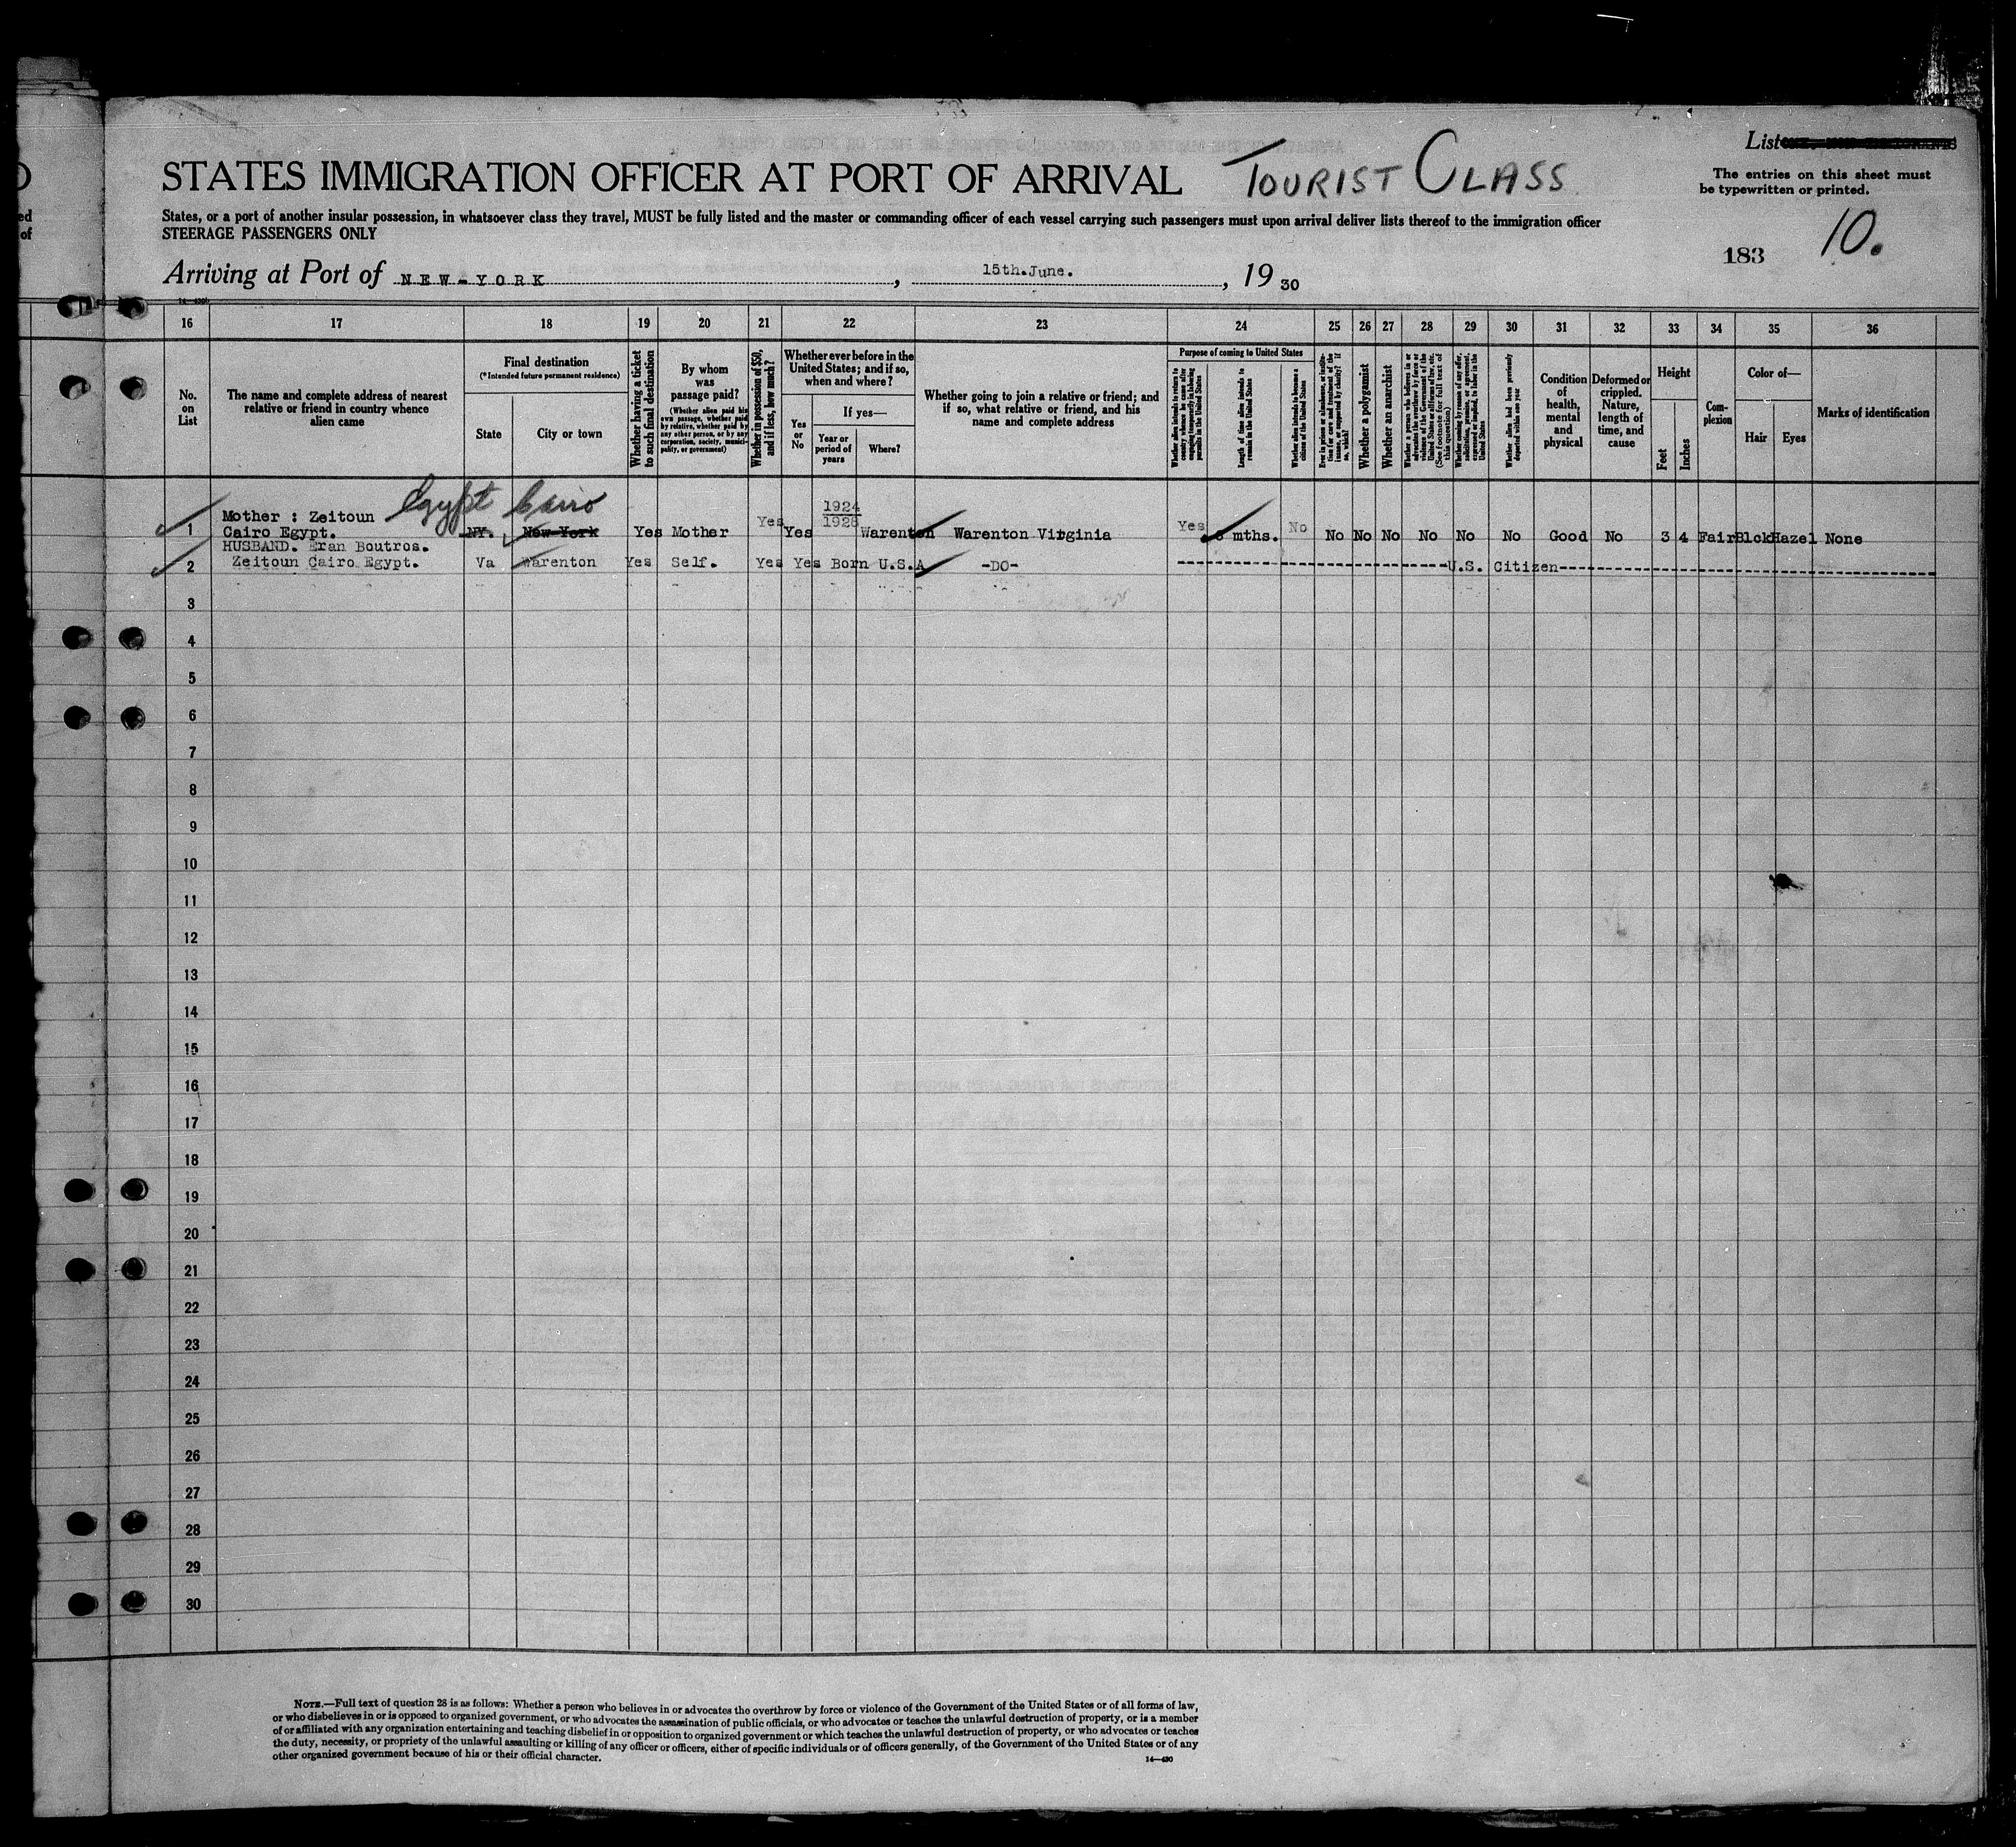 List
STATES IMMIGRATION OFFICER AT PORT OF ARRIVAL TOURIST CLASS
The entries on this sheet must
be typewritten or printed.
States, or a port of another insular possession, in whatsoever class they travel, MUST be fully listed and the master or commanding officer of each vessel carrying such passengers must upon arrival deliver lists thereof to the immigration officer
STEERAGE PASSENGERS ONLY
183 10.
Arriving at Port of NEW-YORK, 15th.June., 19 30
ed
of
16 17 18 19 20 21 22 23 24 25 26 27 28 29 30 31 32 33 34 35 36
No.
on
List
The name and complete address of nearest
relative or friend in country whence
alien came
Final destination
(*Intended future permanent residence)
State
City or town
Whether having a ticket
to such final destination
By whom
was
passage paid?
(Whether alien paid his
own passage, whether paid
by relative, whether paid by
any other person, or by any
corporation, society, munici-
pality, or government)
Whether in possession of $50,
and if less, how much?
Whether ever before in the
United States; and if so,
when and where?
Yes
or
No
If yes—
Year or
period of
years
Where?
Whether going to join a relative or friend; and
if so, what relative or friend, and his
name and complete address
Purpose of coming to United States
Whether alien intends to return to
country whence he came after
engaging temporarily in laboring
pursuits in the United States
Length of time alien intends to
remain in the United States
Whether alien intends to become a
citizen of the United States
Ever in prison or almshouse, or institu-
tion for care and treatment of the
insane, or supported by charity? If
so, which?
Whether a polygamist
Whether an anarchist
Whether a person who believes in or
advocates the overthrow by force or
violence of the Government of the
United States or all forms of law, etc.
(See footnote for full text of
this question)
Whether coming by reason of any offer,
solicitation, promise, or agreement,
expressed or implied, to labor in the
United States
Whether alien had been previously
deported within one year
Condition
of
health,
mental
and
physical
Deformed or
crippled.
Nature,
length of
time, and
cause
Height
Feet
Inches
Com-
plexion
Color of—
Hair
Eyes
Marks of identification
Egypt Cairo
1 Mother : Zeitoun
Cairo Egypt. NY. New York Yes Mother Yes Yes 1924
1928 Warenton Warenton Virginia Yes mths. No No No No No No No Good No 3 4 Fair Blck Hazel None
HUSBAND. Eran Boutros.
2 Zeitoun Cairo Egypt. Va Warenton Yes Self. Yes Yes Born U.S.A -DO- U.S. Citizen
3
4
5
6
7
8
9
10
11
12
13
14
15
16
17
18
19
20
21
22
23
24
25
26
27
28
29
30
NOTE.—Full text of question 28 is as follows: Whether a person who believes in or advocates the overthrow by force or violence of the Government of the United States or of all forms of law,
or who disbelieves in or is opposed to organized government, or who advocates the assassination of public officials, or who advocates or teaches the unlawful destruction of property, or is a member
of or affiliated with any organization entertaining and teaching disbelief in or opposition to organized government or which teaches the unlawful destruction of property, or who advocates or teaches
the duty, necessity, or propriety of the unlawful assaulting or killing of any officer or officers, either of specific individuals or of officers generally, of the Government of the United States or of any
other organized government because of his or their official character.
14—430